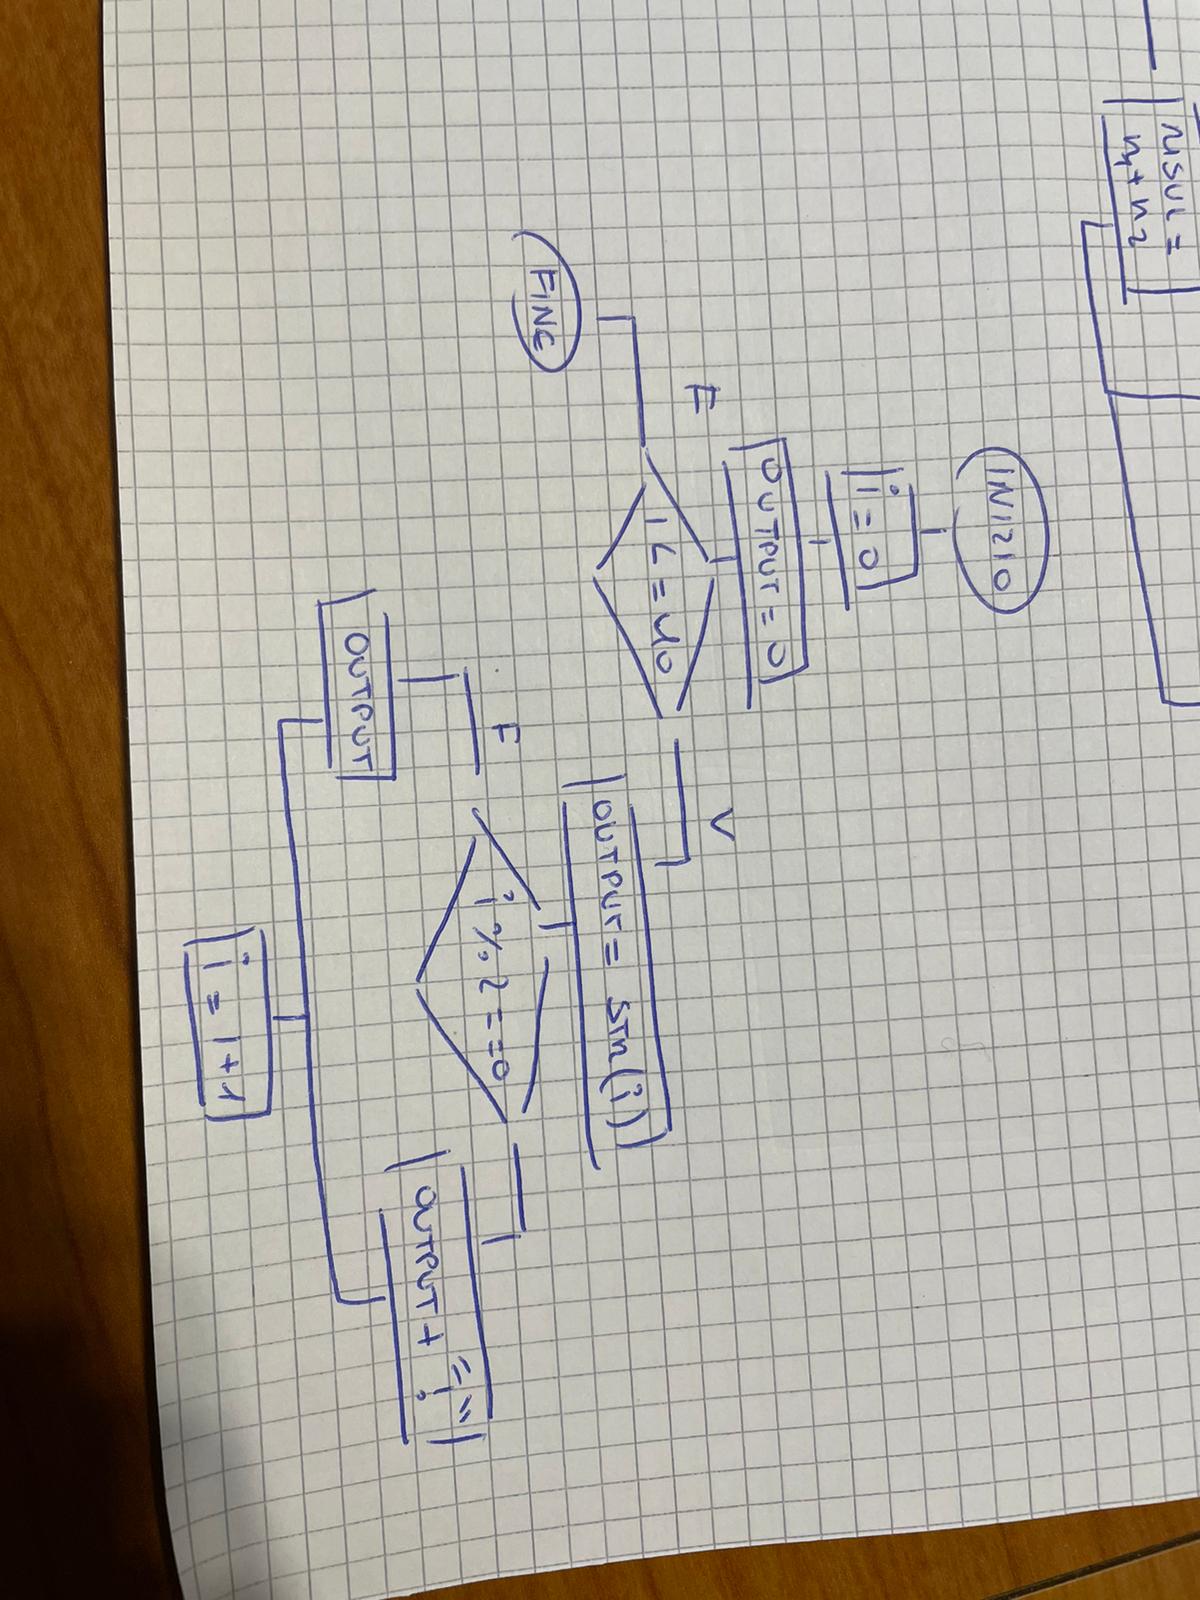 RISUL =
n1 + n2
INIZIO
i = 0
OUTPUT = 0
F
I <= 40
V
FINE
OUTPUT = STR(i)
F
i % 2 == 0
OUTPUT
OUTPUT + "!"
i = 1 + 1